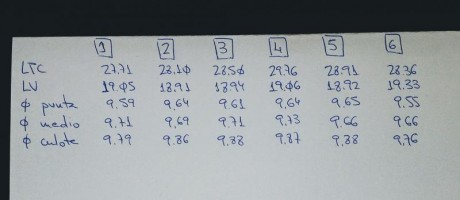 1 2 3 4 5 6
LTC 27.71 28.10 28.50 29.76 28.91 28.36
LV 19.05 18.91 18.94 19.06 18.92 19.33
Ø punta 9.59 9.64 9.61 9.64 9.65 9.55
Ø medio 9.71 9.69 9.71 9.73 9.66 9.66
Ø culote 9.79 9.86 9.88 9.87 9.88 9.76